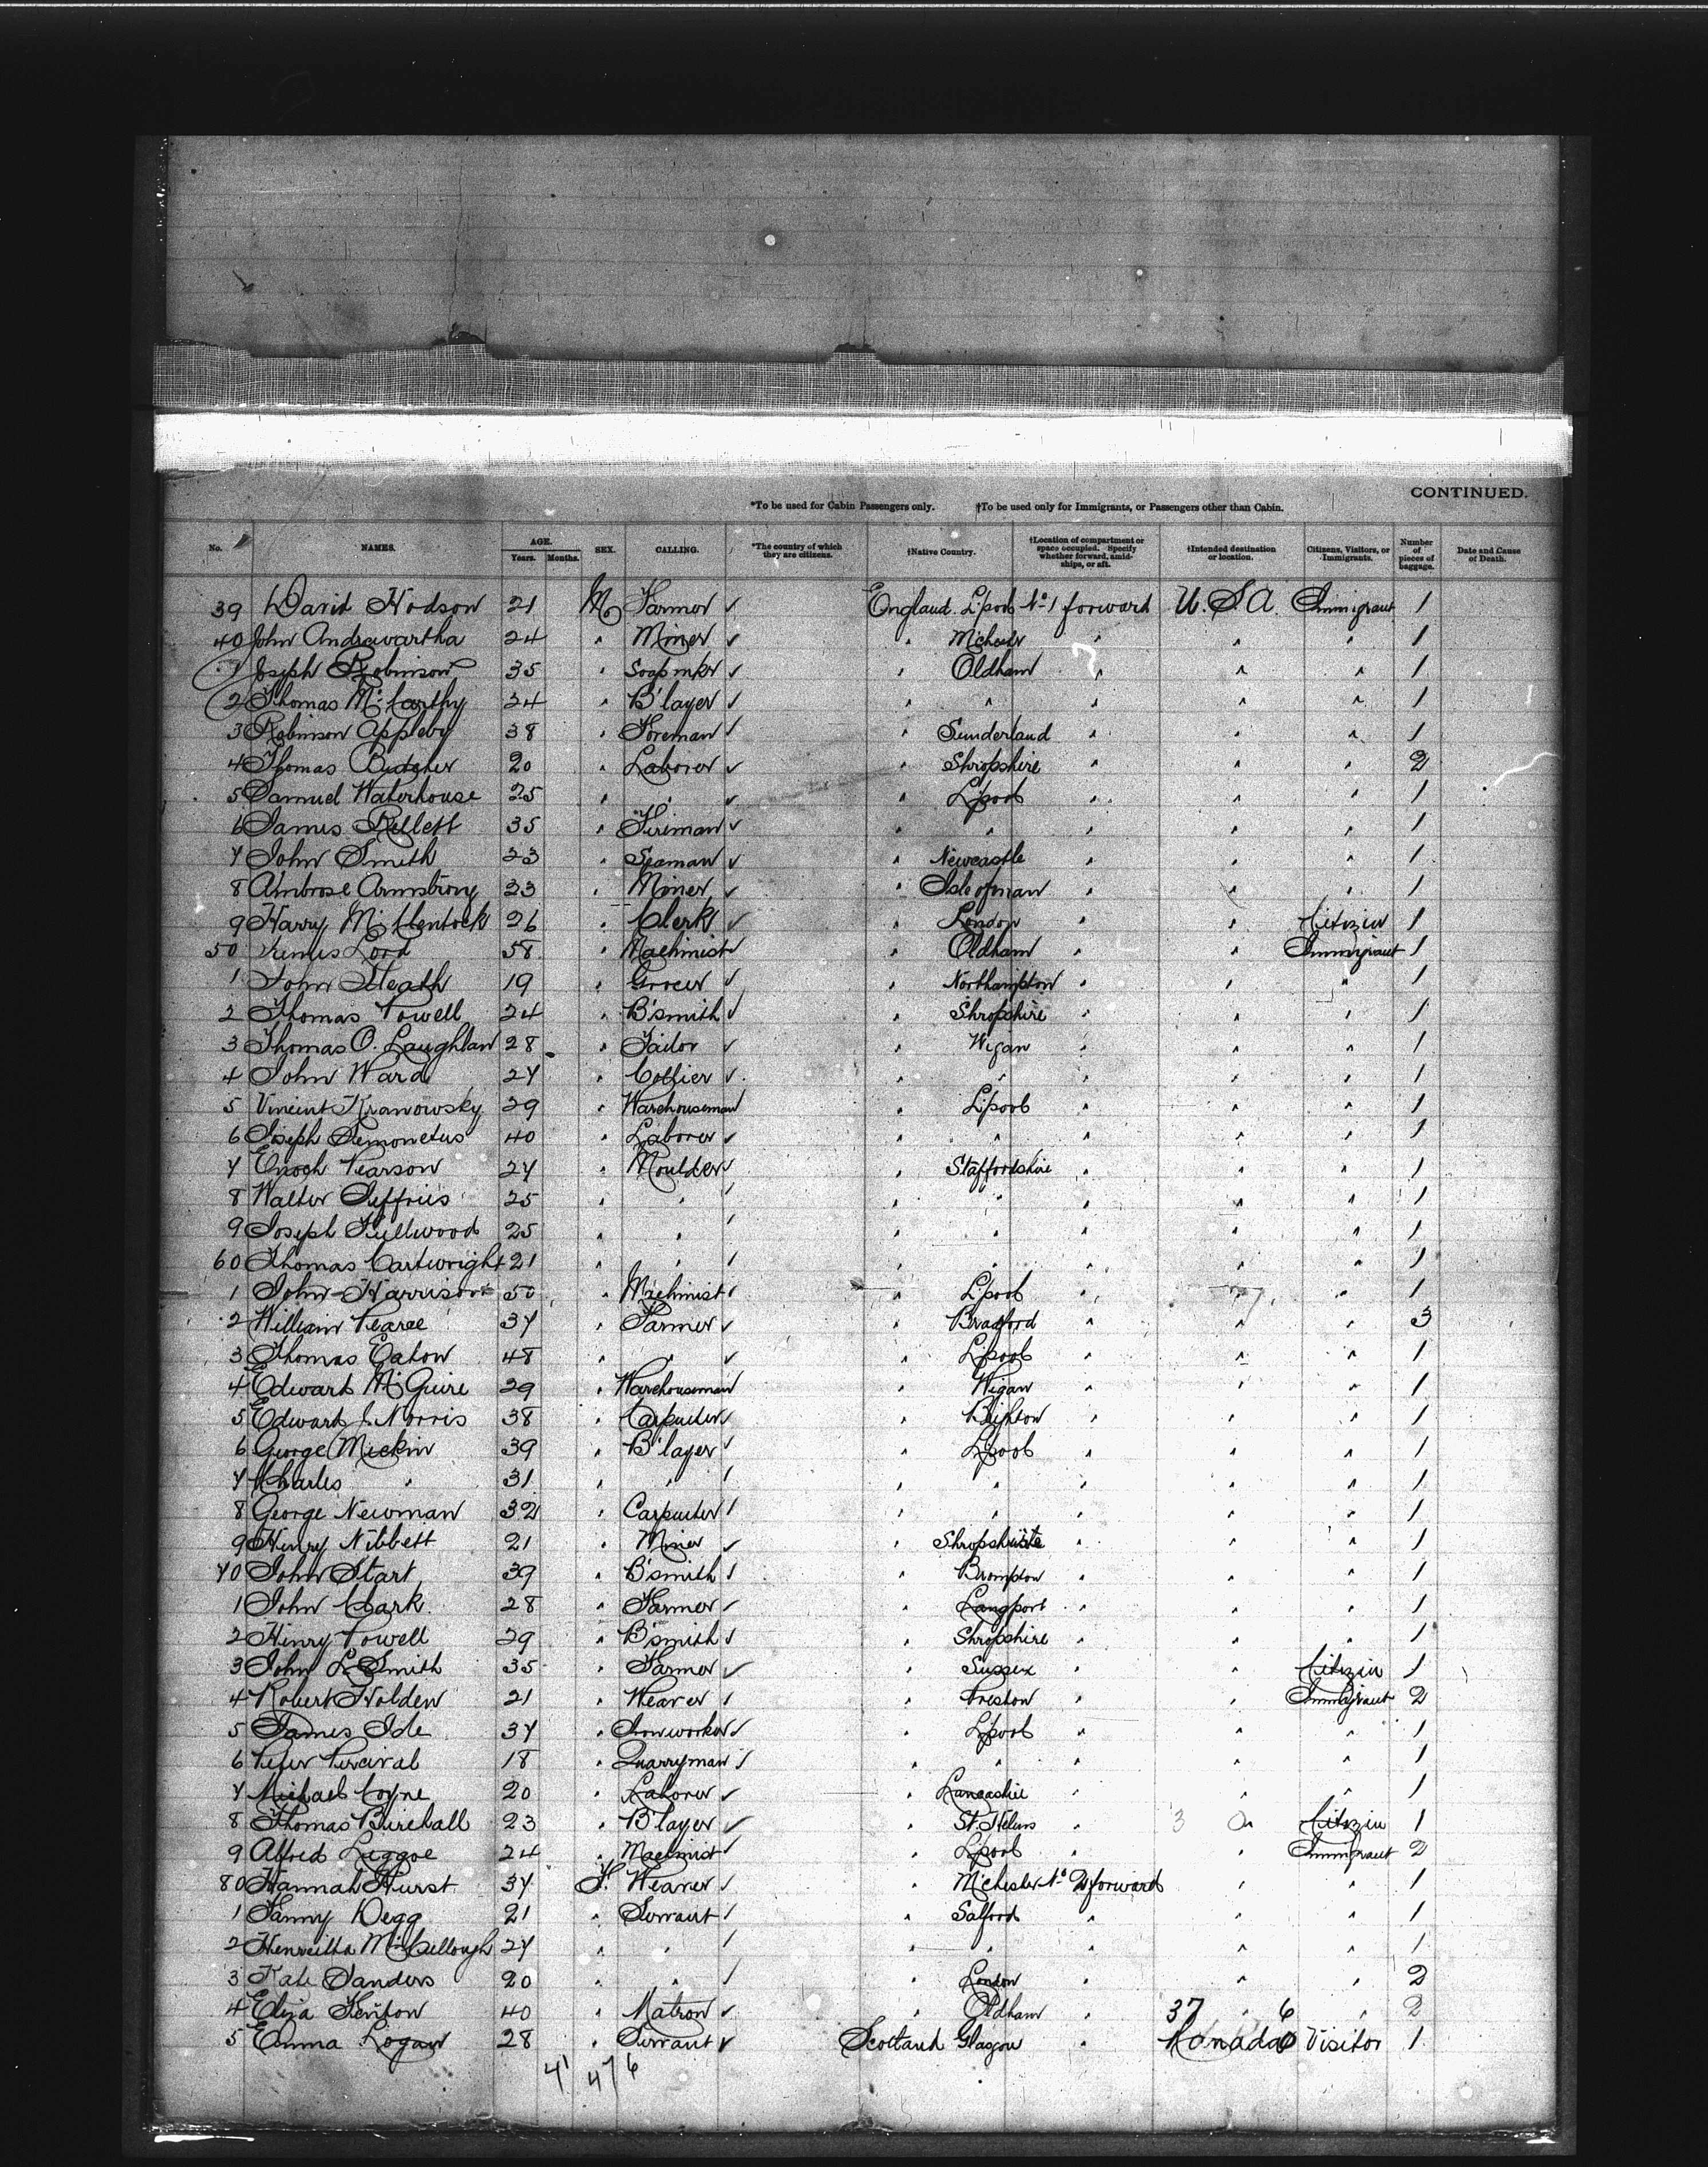 CONTINUED.
*To be used for Cabin Passengers only. †To be used only for Immigrants, or Passengers other than Cabin.
No. NAMES. AGE. Years. Months. SEX. CALLING. *The country of which they are citizens. †Native Country. †Location of compartment or space occupied. Specify whether forward, amidships, or aft. †Intended destination or location. Citizens, Visitors, or Immigrants. Number of pieces of baggage. Date and Cause of Death.
39 David Hodson 21 M Farmer ✓ England L'pool No 1 forward U.S.A. Immigrant 1
40 John Andrewartha 24 " Miner ✓ " Mchester " " " 1
1 Joseph Robinson 35 " Soap mkr ✓ " Oldham " " " 1
2 Thomas McCarthy 24 " B'layer ✓ " " " " " 1
3 Robinson Appleby 38 " Foreman ✓ " Sunderland " " " 1
4 Thomas Butcher 20 " Laborer ✓ " Shropshire " " " 2
5 Samuel Waterhouse 25 " " ✓ " L'pool " " " 1
6 James Rellett 35 " Fireman ✓ " " " " " 1
7 John Smith 23 " Seaman ✓ " Newcastle " " " 1
8 Ambrose Armstrong 23 " Miner ✓ " Isle of man " " " 1
9 Harry McClentock 26 " Clerk ✓ " London " " Citizen 1
50 Lord 58 " Machinist ✓ " Oldham " " Immigrant 1
1 John Heath 19 " Grocer ✓ " Northampton " " " 1
2 Thomas Powell 24 " B'smith ✓ " Shropshire " " " 1
3 Thomas O. Laughlan 28 " Tailor ✓ " Wigan " " " 1
4 John Ward 27 " Collier ✓ " " " " " 1
5 Vincent Kranowsky 29 " Warehouseman " L'pool " " " 1
6 Joseph 40 " Laborer ✓ " " " " " 1
7 Enoch Pearson 27 " Moulder ✓ " Staffordshire " " " 1
8 Walter Jeffries 25 " " ✓ " " " " " 1
9 Joseph Fullwood 25 " " ✓ " " " " " 1
60 Thomas Cartwright 21 " " ✓ " " " " " 1
1 John Harrison 50 " Machinist ✓ " L'pool " " " 1
2 William Pearce 37 " Farmer ✓ " Bradford " " " 3
3 Thomas Eaton 48 " " ✓ " L'pool " " " 1
4 Edward McGuire 29 " Warehouseman " Wigan " " " 1
5 Edward J. Norris 38 " Carpenter ✓ " Brighton " " " 1
6 George Meekin 39 " B'layer ✓ " L'pool " " " 1
7 Charles " 31 " " ✓ " " " " " 1
8 George Newman 32 " Carpenter ✓ " " " " " 1
9 Henry Nibbett 21 " Miner ✓ " Shropshire " " " 1
70 John Start 39 " B'smith ✓ " Brompton " " " 1
1 John Clark 28 " Farmer ✓ " Langport " " " 1
2 Henry Powell 29 " B'smith ✓ " Shropshire " " " 1
3 John L. Smith 35 " Farmer ✓ " Sussex " " Citizen 1
4 Robert Holden 21 " Weaver ✓ " Preston " " Immigrant 2
5 James Ide 37 " Ironworker ✓ " L'pool " " " 1
6 Peter Percival 18 " Quarryman ✓ " " " " " 1
7 Michael Coyne 20 " Laborer ✓ " Lancashire " " " 1
8 Thomas Birchall 23 " B'layer ✓ " St. Helens " " Citizen 1
9 Alfred Leggoe 24 " Machinist ✓ " L'pool " " Immigrant 2
80 Hannah Hurst 37 F. Weaver ✓ " Mchester No 2 forward " " 1
1 Fanny Degg 21 " Servant ✓ " Salford " " " 1
2 Henreitta McCullough 27 " " ✓ " " " " " 1
3 Kate Sanders 20 " " ✓ " London " " " 2
4 Eliza Fenton 40 " Matron ✓ " Oldham " 37 " 6 " 2
5 Emma Logan 28 " Servant ✓ Scotland Glasgow " Kanada Visitor 1
41 47 6